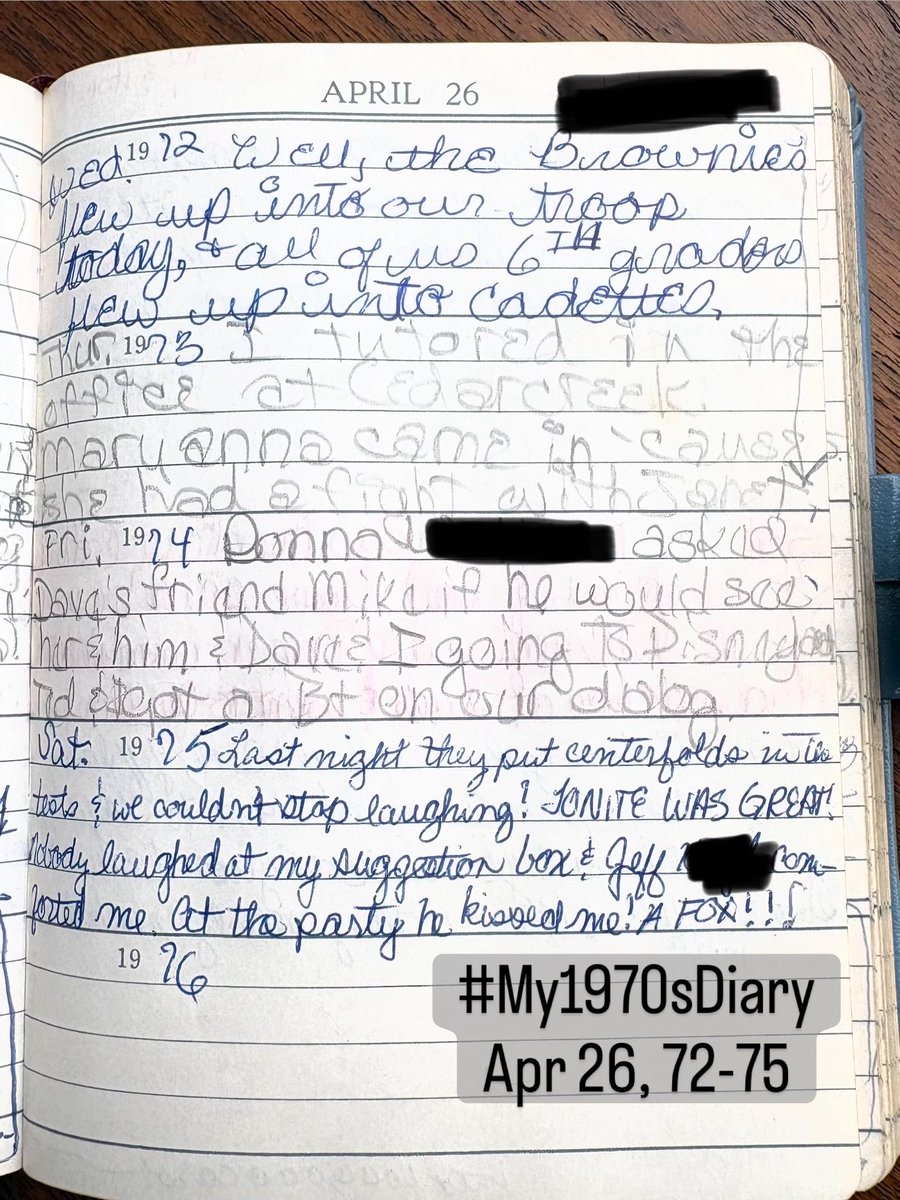 APRIL 26
Wed. 1972 Well, the Brownies
flew up into our troop
today, & all of us 6TH graders
flew up into cadettes.
Thur. 1973 I tutored in the
office at Cedarcreek.
Maryanna came in 'cause
she had a fight with
Fri. 1974 Donna asked
Dave's friend Mike if he would see
her & him & Dave & I going to
Ted & I got a B+ on our
Sat. 1975 Last night they put centerfolds in the
tests & we couldn't stop laughing! TONITE WAS GREAT!
Nobody laughed at my suggestion box & Jeff com-
forted me. At the party he kissed me! A FOX!!!
1976
#My1970sDiary
Apr 26, 72-75